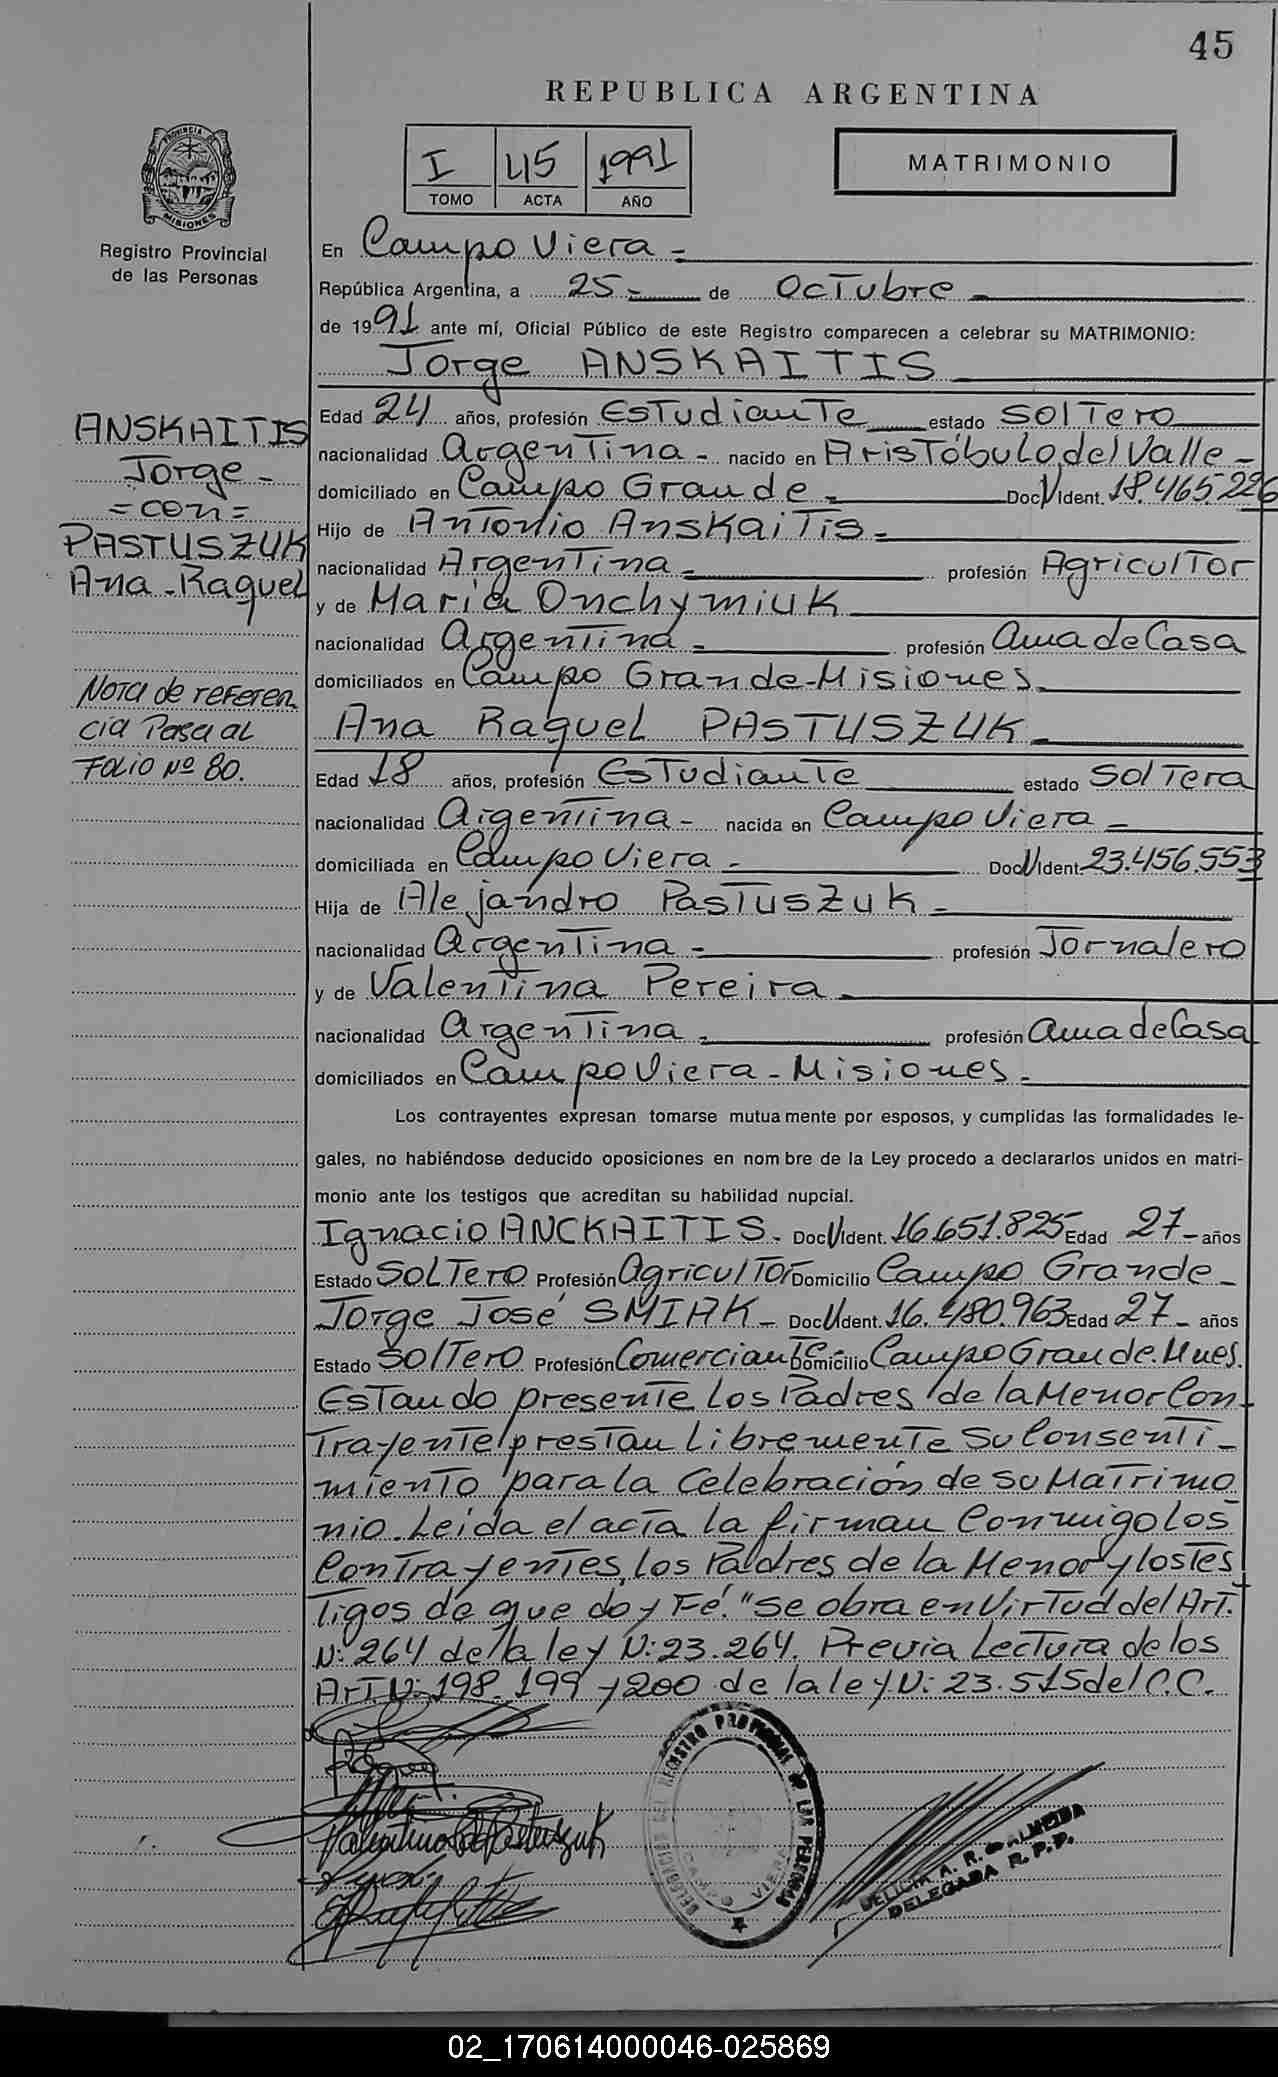 45
REPUBLICA ARGENTINA
PROVINCIA DE MISIONES
Registro Provincial
de las Personas
I 45 1991
TOMO ACTA AÑO
MATRIMONIO
En Campo Viera -
República Argentina, a 25 - de OcTubre -
de 1991 ante mí, Oficial Público de este Registro comparecen a celebrar su MATRIMONIO:
Jorge ANSKAITIS
Edad 24 años, profesión EsTudianTe estado SolTero
nacionalidad ArgenTina - nacido en ArisTóbulo del Valle -
domiciliado en Campo Grande - Doc. Ident. 18.465.226
Hijo de AnTonio AnskaiTis -
nacionalidad ArgenTina - profesión AgriculTor
y de María Onchymiuk
nacionalidad ArgenTina - profesión Ama de Casa
domiciliados en Campo Grande - Misiones -
Ana Raquel PASTUSZUK -
Edad 18 años, profesión EsTudianTe estado SolTera
nacionalidad ArgenTina - nacida en Campo Viera -
domiciliada en Campo Viera - Doc. Ident. 23.456.553
Hija de Alejandro PasTuszuk -
nacionalidad ArgenTina - profesión Jornalero
y de ValenTina Pereira -
nacionalidad ArgenTina - profesión Ama de Casa
domiciliados en Campo Viera - Misiones -
Los contrayentes expresan tomarse mutuamente por esposos, y cumplidas las formalidades le-
gales, no habiéndose deducido oposiciones en nombre de la Ley procedo a declararlos unidos en matri-
monio ante los testigos que acreditan su habilidad nupcial.
Ignacio ANCKAITIS - Doc. Ident. 16.651.825 Edad 27 - años
Estado SolTero Profesión AgriculTor Domicilio Campo Grande -
Jorge José SMIAK - Doc. Ident. 16.480.963 Edad 27 - años
Estado SolTero Profesión ComercianTe Domicilio Campo Grande. Mnes.
EsTando presenTe los Padres de la Menor Con-
TrayenTe presTan LibremenTe su ConsenTi-
mienTo para la Celebración de su MaTrimo
nio. Leida el acTa la firman Conmigo los
ConTrayenTes, los Padres de la Menor y los Tes
Tigos de que doy Fé. "Se obra en VirTud del ArT.
N: 264 de la ley N: 23.264. Previa LecTura de los
ArT. N: 198. 199 y 200 de la ley N: 23.515 del C.C.
ANSKAITIS
Jorge -
= con =
PASTUSZUK
Ana - Raquel
NoTa de referen
cia Pasa al
Folio Nº 80.
Valentina P de Pastuszuk
DELEGACION DEL REGISTRO PROVINCIAL DE LAS PERSONAS
CAMPO VIERA
DELICIA A. R. D'ALMEIDA
DELEGADA R. P. P.
02_170614000046-025869